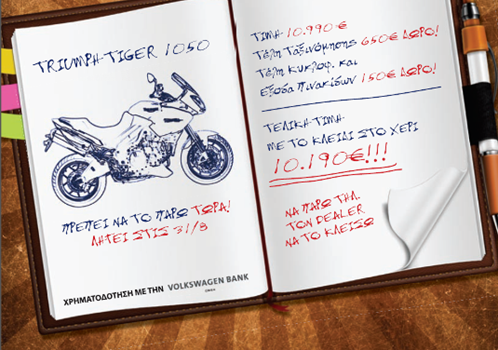 TRIUMPH TIGER 1050
ΠΡΕΠΕΙ ΝΑ ΤΟ ΠΑΡΩ ΤΩΡΑ!
ΛΗΓΕΙ ΣΤΙΣ 31/8
ΧΡΗΜΑΤΟΔΟΤΗΣΗ ΜΕ ΤΗΝ VOLKSWAGEN BANK
ΤΙΜΗ 10.990€
Τέλη Ταξινόμησης 650€ ΔΩΡΟ!
Τέλη Κυκλοφ. και
Εξοδα Πινακίδων 150€ ΔΩΡΟ!
ΤΕΛΙΚΗ ΤΙΜΗ
ΜΕ ΤΟ ΚΛΕΙΔΙ ΣΤΟ ΧΕΡΙ
10.190€!!!
ΝΑ ΠΑΡΩ ΤΗΛ.
ΤΟΝ DEALER
ΝΑ ΤΟ ΚΛΕΙΣΩ